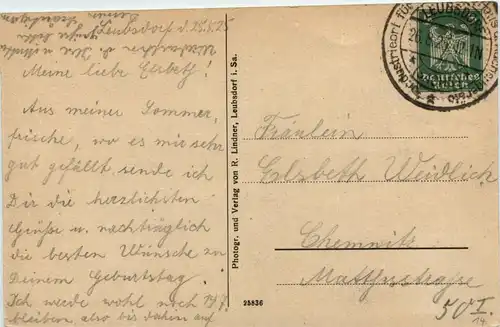 Leubsdorf d. 25.8.25
Meine liebe Elsbeth!
Aus meiner Sommer,
frische, wo es mir sehr
gut gefällt sende ich
Dir die herzlichsten
Grüße u. nachträglich
die besten Wünsche zu
Deinem Geburtstag.
Ich werde wohl noch
bleiben also bis dahin auf
Photogr. und Verlag von R. Lindner, Leubsdorf i. Sa.
25836
LEUBSDORF
Deutsches
Reich
Fräulein
Elsbeth Weidlich
Chemnitz
50 I
14